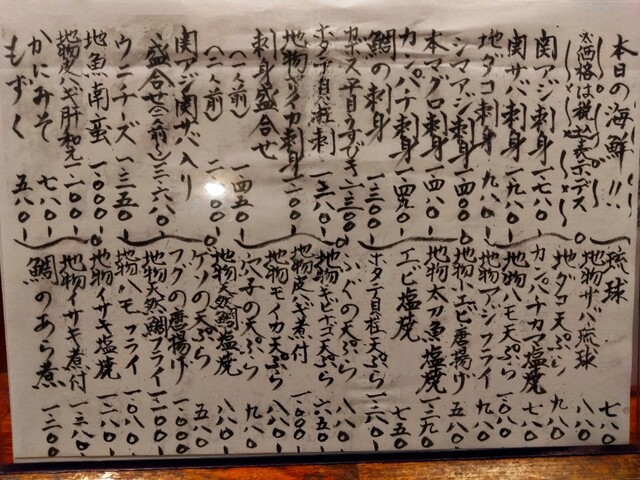 本日の海鮮!!
※価格は税込表示デス
関アジ刺身 一、七八〇-
関サバ刺身 一、九八〇-
地ダコ刺身 九八〇-
シマアジ刺身 一、四八〇-
本マグロ刺身 一、四八〇-
カンパチ刺身 一、四九〇-
鯛の刺身 一、三〇〇-
カボス平目うすびき 一、三〇〇-
ホタテ貝柱刺 一、三八〇-
地物モイカ刺身 一、二〇〇-
刺身盛合せ
(一人前) 一、四五〇-
(二人前)
関アジ関サバ入り
盛合せ(二人前〜) 三、六八〇-
ウニチーズ 一、三五〇-
地魚南蛮 一、〇〇〇-
地物皮ハギ肝和え 一、一〇〇-
かにみそ 七八〇-
もずく 五八〇-
琉球 七八〇-
地物サバ琉球 八八〇-
地ダコ天ぷら 九八〇-
カンパチカマ塩焼 七八〇-
地物ハモ天ぷら 一、〇八〇-
地物アジフライ 九八〇-
地物小エビ唐揚げ 五八〇-
地物太刀魚塩焼 一、三九〇-
エビ塩焼 七五〇-
ホタテ貝柱天ぷら 一、二八〇-
ふぐの天ぷら 八八〇-
地物キビナゴ天ぷら 六五〇-
地物皮ハギ煮付 一、一〇〇-
地物モイカ天ぷら 八八〇-
穴子の天ぷら 九八〇-
地物天然鯛塩焼 八八〇-
ゲソの天ぷら 五八〇-
フグの唐揚げ 一、〇〇〇-
地物天然鯛フライ 一、一〇〇-
地物ハモフライ 一、〇八〇-
地物イサキ塩焼 一、二八〇-
地物イサキ煮付 一、三八〇-
鯛のあら煮 一、三〇〇